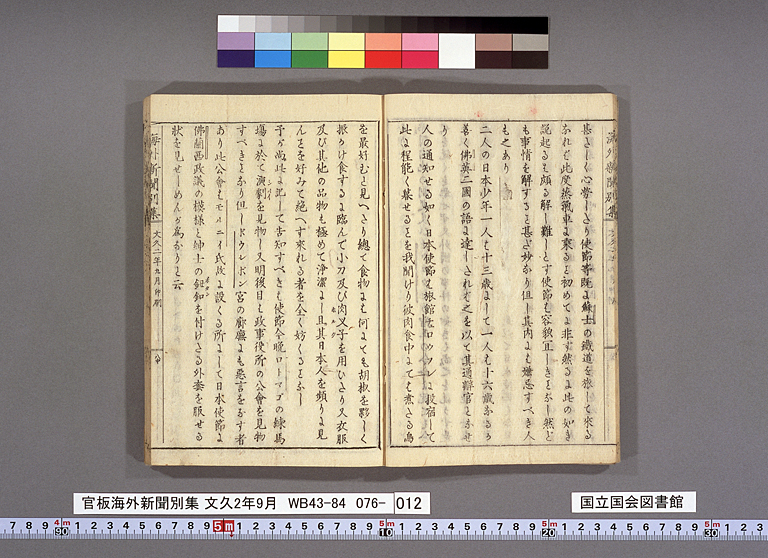 甚しく心勞しさり使節等既に蘇士の鐵道を旅して來る
なれば此度蒸氣車に乘ると初めてに非ず然るに此の如き
説起るも頗る解し難しとす使節も容貌宜しきとなし然ど
も事情を解すると甚だ妙なり但し其内にも嫌忌すべき人
も之あり
二人の日本少年一人も十三歳にして一人も十六歳なるが
善く佛英二國の語に達しされば之を以て其通辯官となせ
り
人の通知せる如く日本使節も旅館に投宿して
此に程能く暮せるとを我聞けり彼肉食中にても煮さる鳥
を最好むと見へさり總て食物にも何にても胡椒を夥しく
振りかけ食するに臨んで小刀及び肉叉子を用ひさり又衣服
及び其他の品物も極めて淨潔にし且其日本人を頻りに見
んとを好みて絶へず來れる者を全く妨くるとなし
予が尚此に記して告知すべきも使節今晩ロートマゴの練馬
場に於て演劇を見物し又明後日も政事役所の公會を見物
すべきとなり但しドウレドン宮の廊廡にも惡言をなす者
あり此公會もモルニイ氏故に設くる所にして日本使節に
佛蘭西政議の模樣と紳士の釦を付けさる外套を服せる
狀を見せしめんが爲なりと云
海外新聞別集
文久二年九月印刷
官板海外新聞別集 文久2年9月 WB43-84 076-012
国立国会図書館